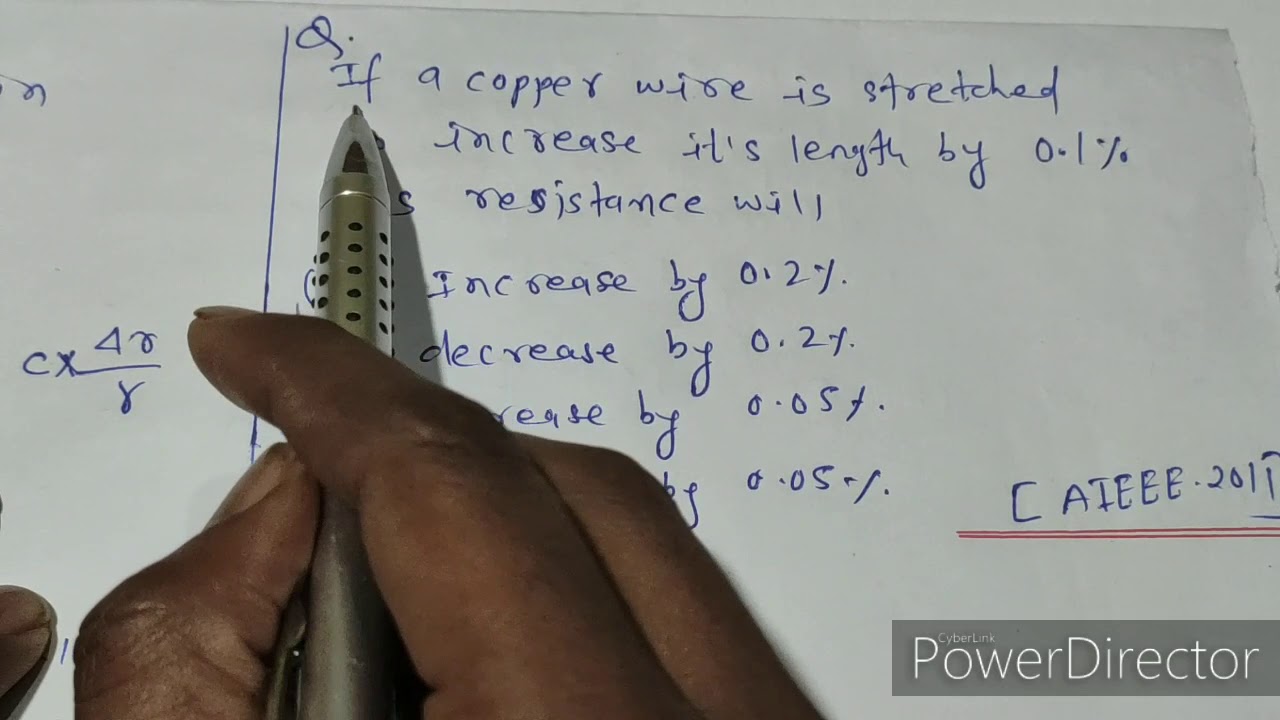 Q.
If a copper wire is stretched
increase it's length by 0.1%
resistance will
Increase by 0.2%.
decrease by 0.2%.
by 0.05%.
by 0.05%.
[AIEEE.2011]
c× Δr
r
CyberLink
PowerDirector